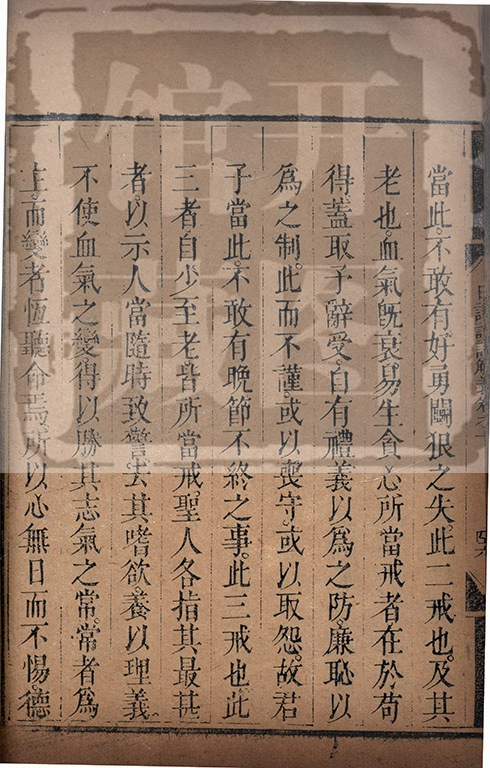 當此不敢有好勇鬭狠之失此二戒也及其
老也血氣既衰易生貪心所當戒者在於苟
得蓋取予辭受自有禮義以爲之防廉恥以
爲之制此而不謹或以喪守或以取怨故君
子當此不敢有晩節不終之事此三戒也此
三者自少至老皆所當戒聖人各指其最甚
者以示人當隨時致警去其嗜欲養以理義
不使血氣之變得以勝其志氣之常常者爲
主而變者恆聽命焉所以心無日而不惕德
日講四書解義卷六